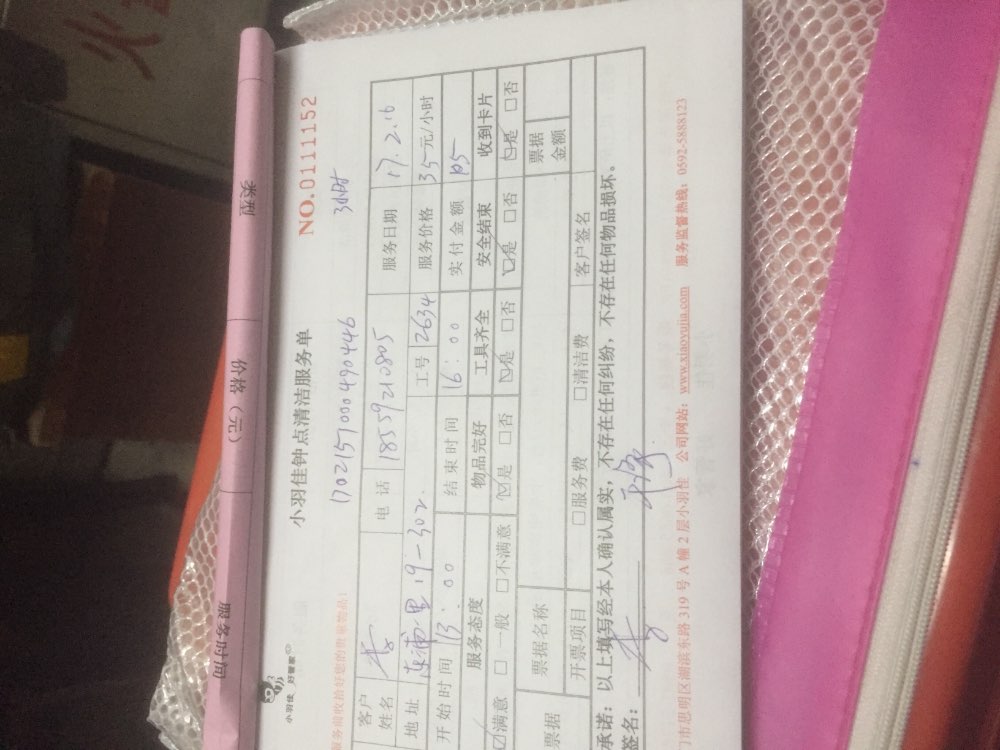 火
类型
价格（元）
服务时间
NO.0111152
小羽佳 好管家
小羽佳钟点清洁服务单
1702157000490446 3小时
服务前收拾好您的贵重物品!
客户姓名 李 电话 18559210805 服务日期 17.2.16
地址 东浦里19-302. 工号 2634 服务价格 35元/小时
开始时间 13:00 结束时间 16:00 实付金额 105
服务态度 物品完好 工具齐全 安全结束 收到卡片
☑满意 □一般 □不满意 ☑是 □否 ☑是 □否 ☑是 □否 ☑是 □否
票据 票据名称 票据金额
开票项目 □服务费 □清洁费 客户签名
承诺：以上填写经本人确认属实，不存在任何纠纷，不存在任何物品损坏。
签名： 李
门市思明区湖滨东路 319 号 A 幢 2 层小羽佳 公司网站：www.xiaoyujia.com 服务监督热线：0592-5888123